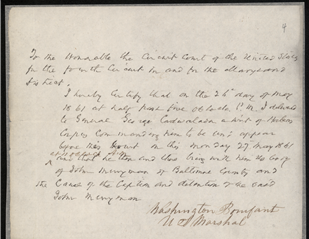 9
To the Honorable the Circuit Court of the United States
for the fourth Circuit in and for the Maryland
District.
I hereby Certify that on the 26th day of May
1861 at half past five oclock P.M. I delivered
to General George Cadwalader a Writ of Habeas
Corpus Commanding him to be and appear
before this Court on this Monday 27 May 1861
and that he then and there bring with him the body
of John Merryman of Baltimore County and
the Cause of the Caption and detention of the said
John Merryman
Washington Bonifant
U S Marshal